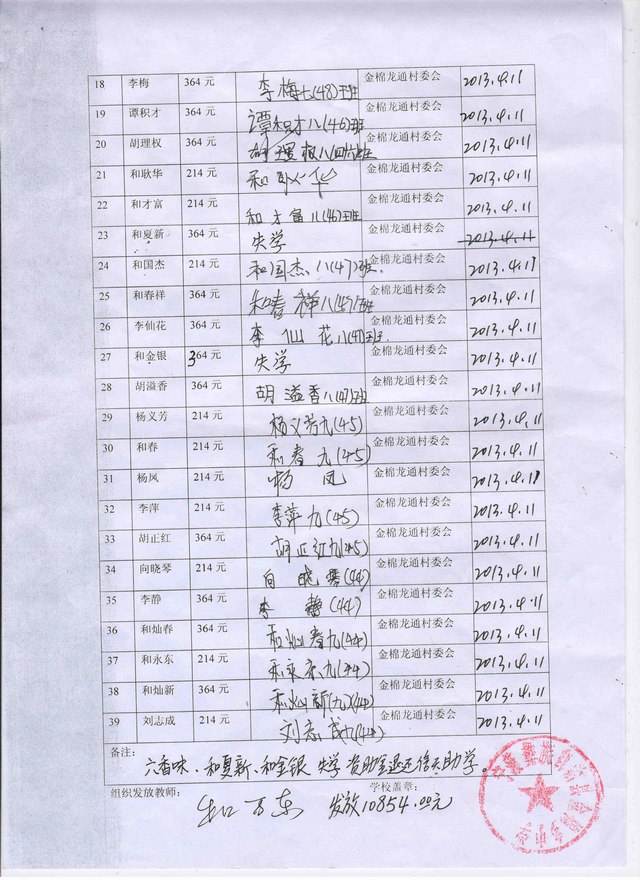 18 李梅 364 元 李梅七(48)班 金棉龙通村委会 2013.4.11
19 谭积才 364 元 谭积才八(46)班 金棉龙通村委会 2013.4.11
20 胡理权 364 元 胡理权八(四六)班 金棉龙通村委会 2013.4.11
21 和耿华 214 元 和耿华 金棉龙通村委会 2013.4.11
22 和才富 214 元 和才富八(46)班 金棉龙通村委会 2013.4.11
23 和夏新 364 元 失学 金棉龙通村委会 2013.4.11
24 和国杰 214 元 和国杰八(47)班. 金棉龙通村委会 2013.4.11
25 和春祥 364 元 和春祥八(47)班 金棉龙通村委会 2013.4.11
26 李仙花 364 元 李仙花八(47)班 金棉龙通村委会 2013.4.11
27 和金银 364 元 失学 金棉龙通村委会 2013.4.11
28 胡溢香 364 元 胡溢香八(47)班 金棉龙通村委会 2013.4.11
29 杨义芳 214 元 杨义芳九(45) 金棉龙通村委会 2013.4.11
30 和春 214 元 和春九(45) 金棉龙通村委会 2013.4.11
31 杨凤 214 元 杨凤 金棉龙通村委会 2013.4.11
32 李萍 214 元 李萍九(45) 金棉龙通村委会 2013.4.11
33 胡正红 214 元 胡正红九(45) 金棉龙通村委会 2013.4.11
34 向晓琴 214 元 向晓琴(44) 金棉龙通村委会 2013.4.11
35 李静 364 元 李静(44) 金棉龙通村委会 2013.4.11
36 和灿春 364 元 和灿春九(44) 金棉龙通村委会 2013.4.11
37 和永东 214 元 和永东九(44) 金棉龙通村委会 2013.4.11
38 和灿新 364 元 和灿新(九)(44) 金棉龙通村委会 2013.4.11
39 刘志成 214 元 刘志成九(44) 金棉龙通村委会 2013.4.11
备注:
六香味、和夏新、和金银 失学 资助金退还信天助学。
组织发放教师: 学校盖章:
发放10854.00元